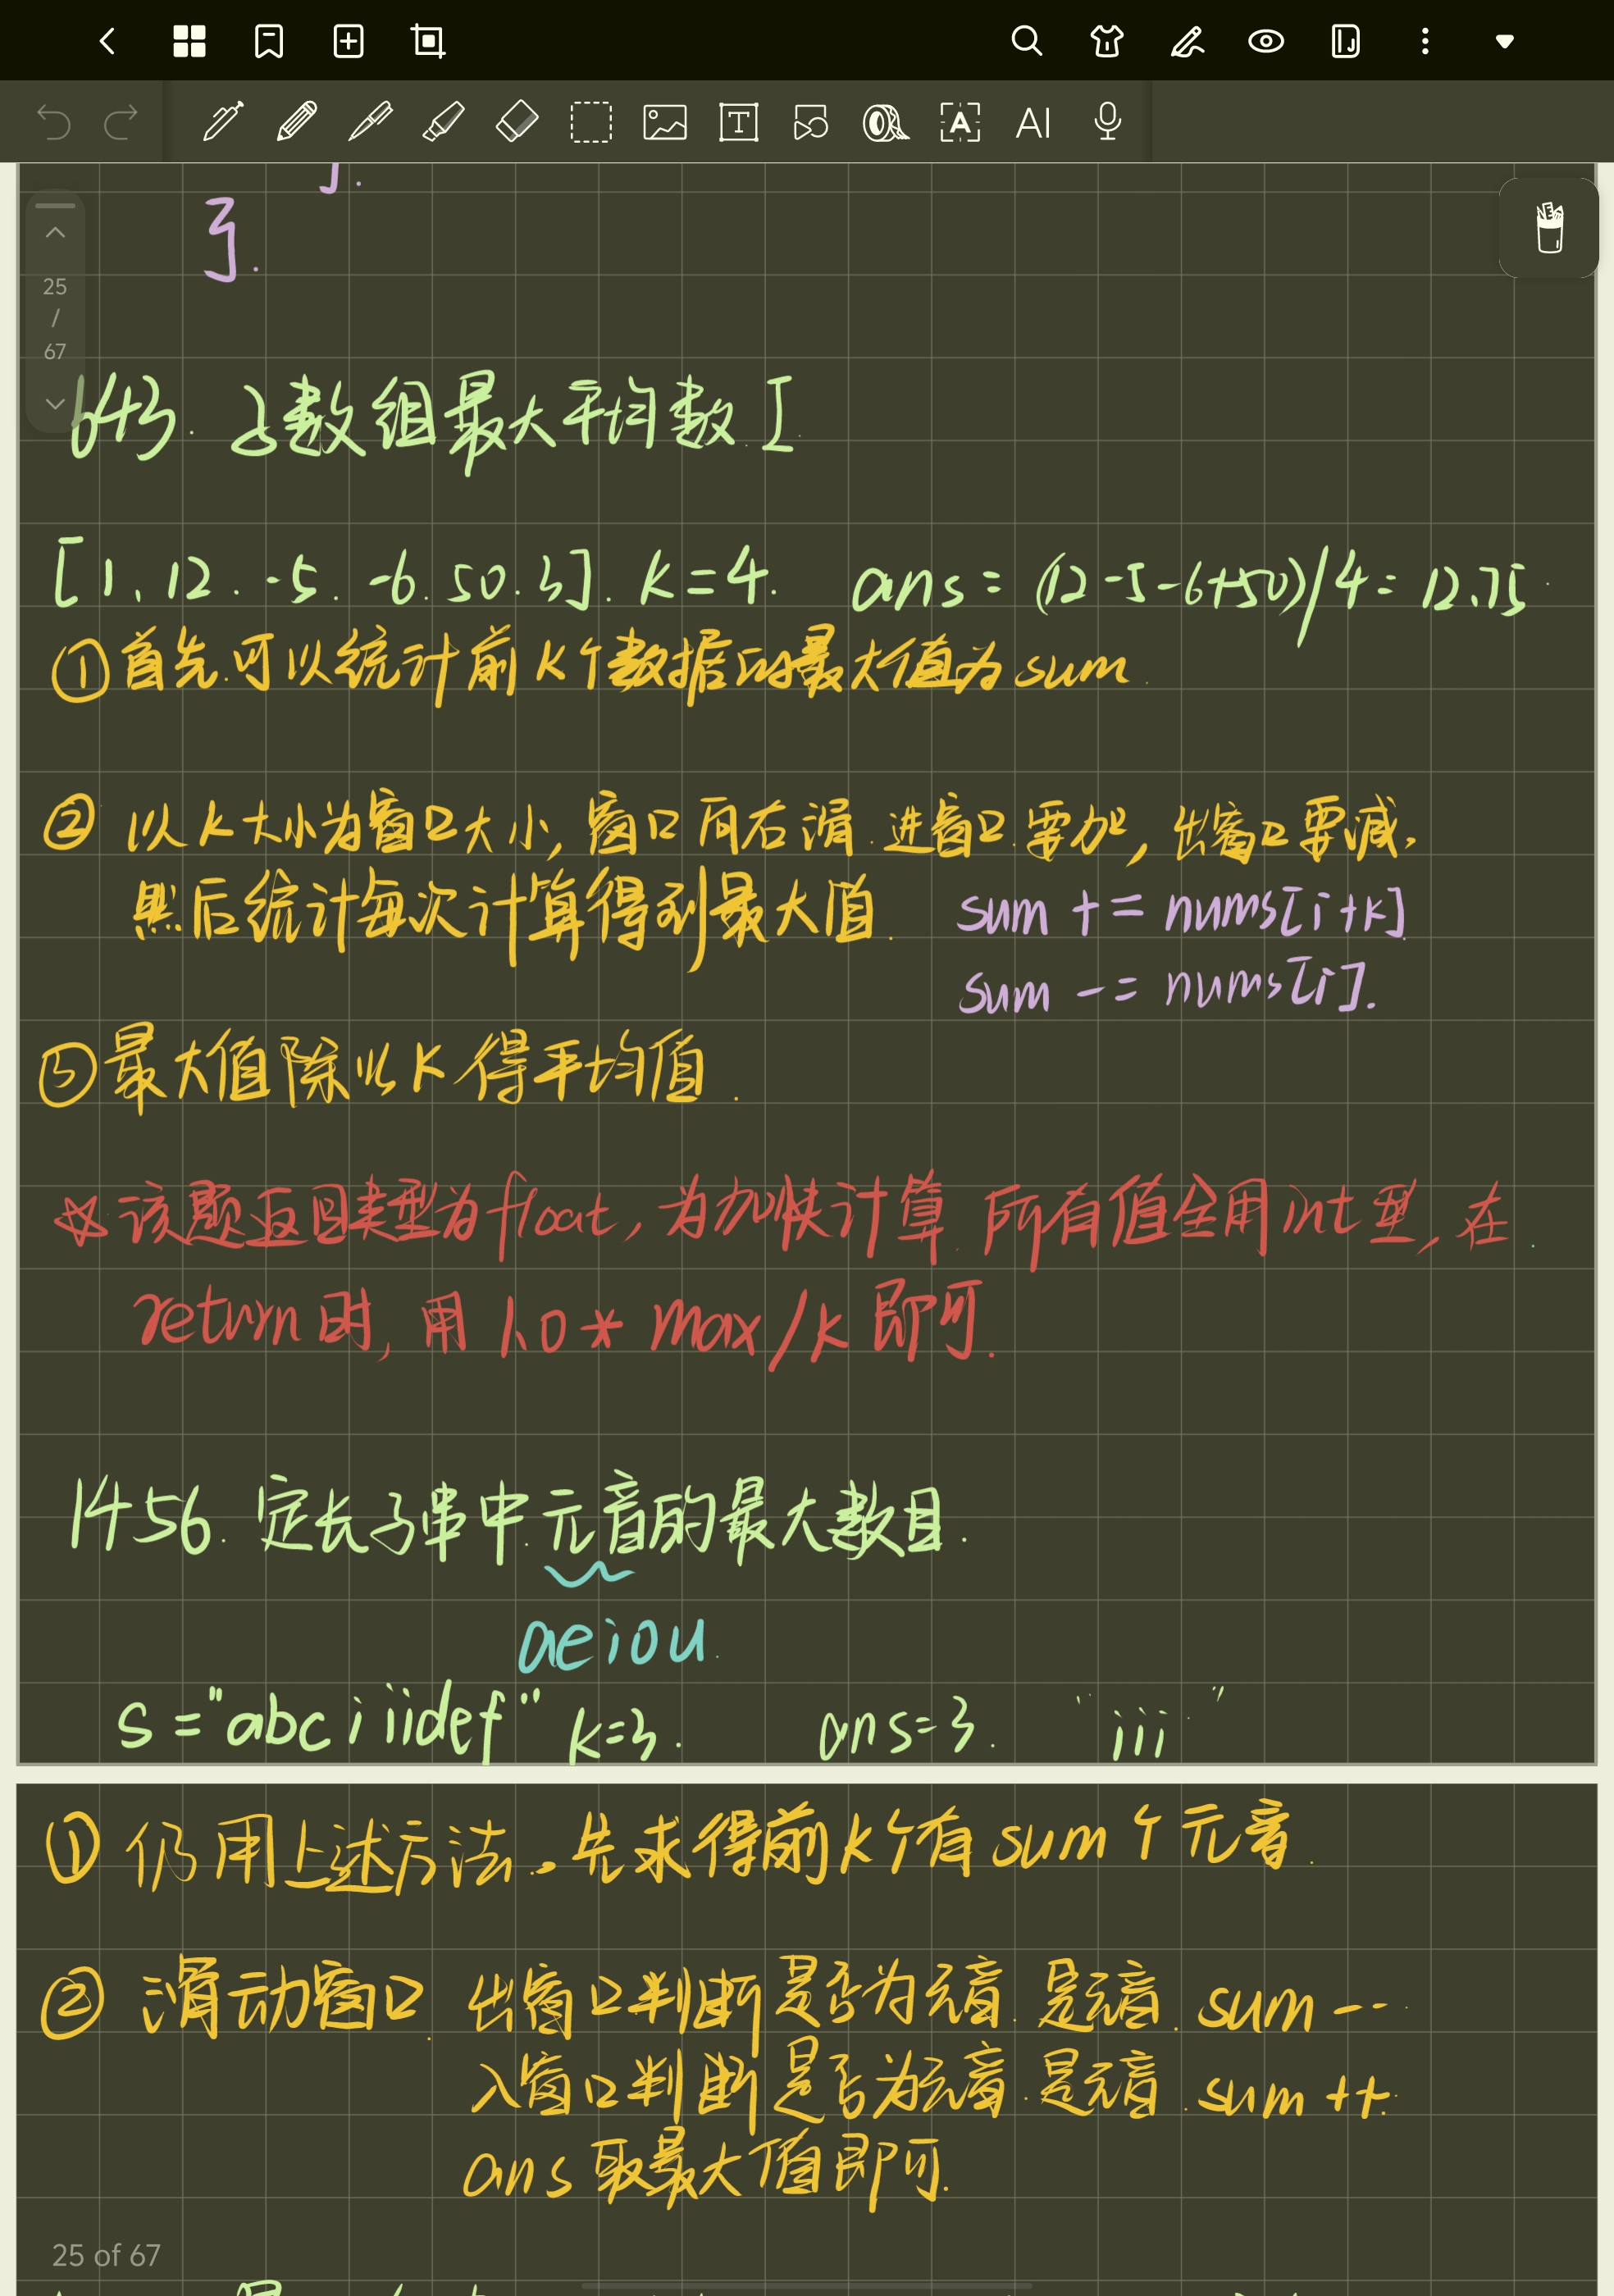 AI
}.
25
/
67
643. 子数组最大平均数 I
[1, 12. -5. -6. 50. 3]. k=4. ans = (12-5-6+50)/4 = 12.75
①首先可以统计前K个数据的最大值为sum.
② 以K大小为窗口大小, 窗口向右滑. 进窗口要加, 出窗口要减,
然后统计每次计算得到最大值. sum += nums[i+k]
sum -= nums[i].
③最大值除以K得平均值.
☆该题返回类型为float, 为加快计算. 所有值全用int型, 在
return时, 用1.0 * max/k 即可.
1456. 定长子串中元音的最大数目.
aeiou.
s = "abciiidef" k=3. ans=3. "iii"
① 仍用上述方法. 先求得前K个有sum个元音.
② 滑动窗口. 出窗口判断是否为元音. 是元音. sum--.
入窗口判断是否为元音. 是元音. sum++.
ans取最大值即可.
25 of 67